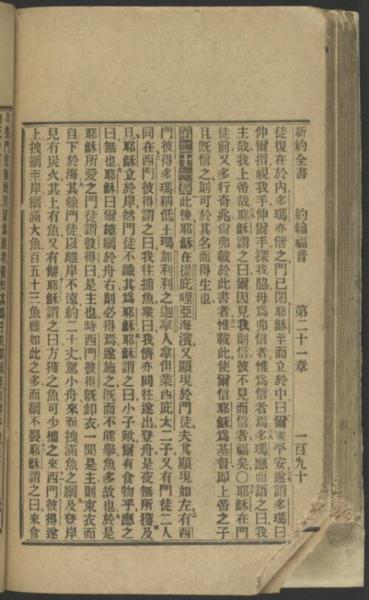 新約全書 約翰福音 第二十一章 一百九十
徒復在於內多瑪亦偕之門已閉耶穌至而立於中曰爾衆平安遂謂多瑪曰
伸爾指視我手伸爾手探我脇毋爲弗信者惟爲信者焉多瑪應而語之曰我
主哉我上帝哉耶穌謂之曰爾因見我則信彼不見而信者福矣〇耶穌在門
徒前又多行奇兆尙弗載於此書者惟載此使爾信耶穌爲基督卽上帝之子
且旣信之則可於其名而得生也
第二十一章此後耶穌在提庇哩亞海濱又顯現於門徒夫其顯現如左有西
門彼得多瑪稱低土瑪加利利之迦拿人拿但業西庇太二子又有門徒二人
同在西門彼得謂之曰我往捕魚衆曰我儕亦同往遂出登舟是夜無所獲及
旦耶穌立於岸然門徒不識其爲耶穌耶穌謂之曰小子歟爾有食物乎應之
曰無也耶穌曰爾施網於舟右則必得焉遂施之而不能舉魚多故也於是
耶穌所愛之門徒謂彼得曰是主也時西門彼得旣卸衣一聞是主則束衣而
自下於海其餘門徒以離岸不遠約二十丈駕小舟來而拽滿魚之網及登岸
見有炭火其上有魚又有餅耶穌謂之曰方獲之魚可少攜之來西門彼得遂
上拽網至岸網滿大魚百五十三魚雖如此之多而網不裂耶穌謂之曰來食